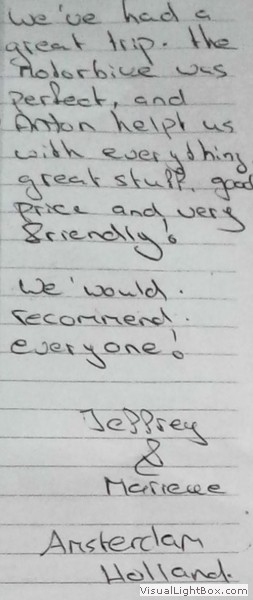 we've had a
great trip. the
Motorbike was
perfect, and
Anton helpt us
with everything,
great stuff, good
price and very
friendly!
We'would.
recommend.
everyone!
Jeffrey
&
Amsterdam
Holland.
VisualLightBox.com